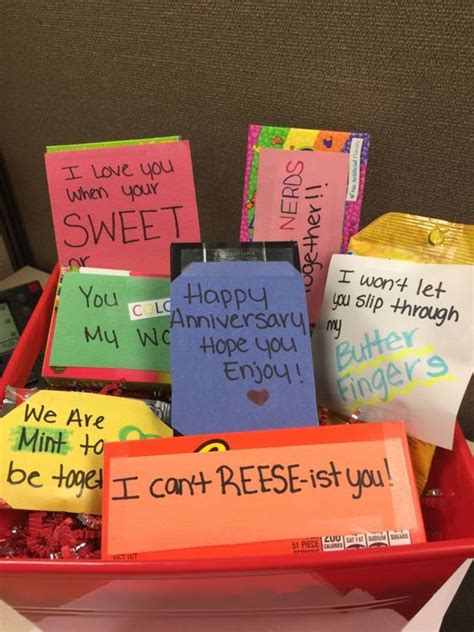 I love you
when your
SWEET
or
NERDS
together!!
You COLO
My Wo
Happy
Anniversary
Hope you
Enjoy!
I won't let
you slip through
my
Butter
Fingers
We Are
Mint to
be toget
I can't REESE-ist you!
51 PIECE
CALORIES SAT FAT SODIUM SUGARS
NET WT